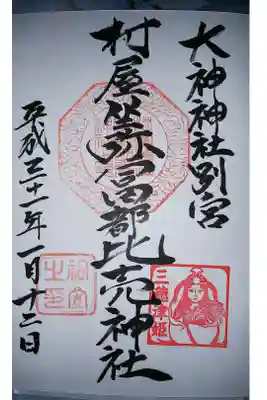 大神神社別宮
村屋坐弥冨都比売神社
平成三十一年一月十二日
三穗津姫